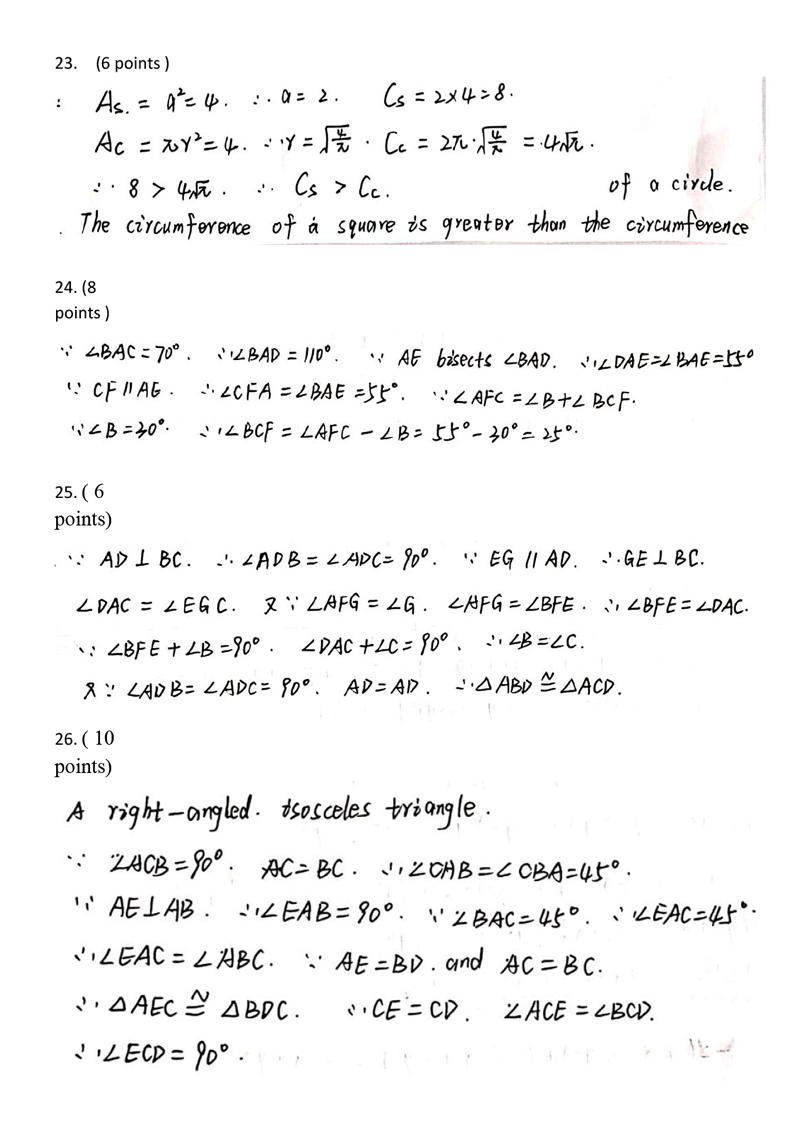 23. (6 points )
: As. = a²= 4. ∴ a = 2. Cs = 2×4=8.
Ac = πr²= 4. ∴ r = √(4/π) . Cc = 2π·√(4/π) = 4√π.
∵ 8 > 4√π. ∴ Cs > Cc. of a circle.
. The circumference of a square is greater than the circumference
24. (8
points )
∵ ∠BAC = 70°. ∴ ∠BAD = 110°. ∵ AE bisects ∠BAD. ∴ ∠DAE=∠BAE=55°
∵ CF∥AE. ∴ ∠CFA = ∠BAE =55°. ∵ ∠AFC = ∠B+∠BCF.
∵ ∠B = 30°. ∴ ∠BCF = ∠AFC − ∠B = 55°− 30° = 25°.
25. ( 6
points)
∵ AD ⊥ BC. ∴ ∠ADB = ∠ADC= 90°. ∵ EG ∥ AD. ∴ GE ⊥ BC.
∠DAC = ∠EGC. 又∵ ∠AFG = ∠G. ∠AFG = ∠BFE. ∴ ∠BFE = ∠DAC.
∵ ∠BFE + ∠B =90°. ∠DAC +∠C = 90°. ∴ ∠B = ∠C.
又∵ ∠ADB = ∠ADC = 90°. AD = AD. ∴ △ABD ≅ △ACD.
26. ( 10
points)
A right-angled. isosceles triangle.
∵ ∠ACB = 90°. AC = BC. ∴ ∠CAB = ∠CBA = 45°.
∵ AE⊥AB. ∴ ∠EAB = 90°. ∵ ∠BAC = 45°. ∴ ∠EAC=45°.
∴ ∠EAC = ∠ABC. ∵ AE = BD. and AC = BC.
∴ △AEC ≅ △BDC. ∴ CE = CD. ∠ACE = ∠BCD.
∴ ∠ECD = 90°.